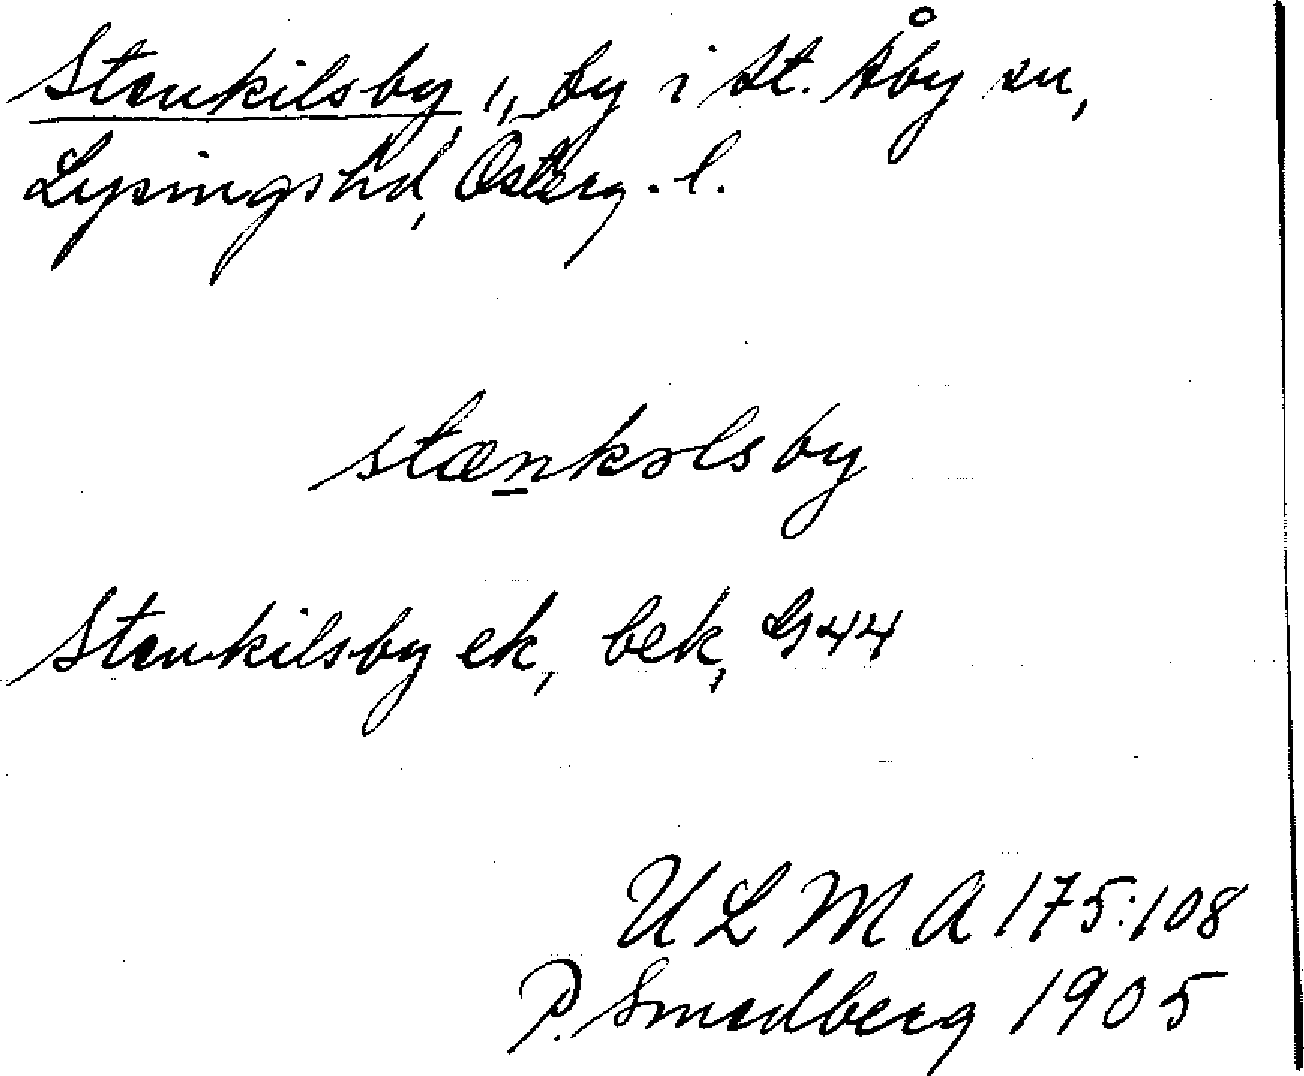 Stenkilsby, by i St. Åby sn,
Lysingshd, Österg. l.
stænkəlsby
Stenkilsby ek, bek, G44
ULMA 175:108
P. Smedberg 1905